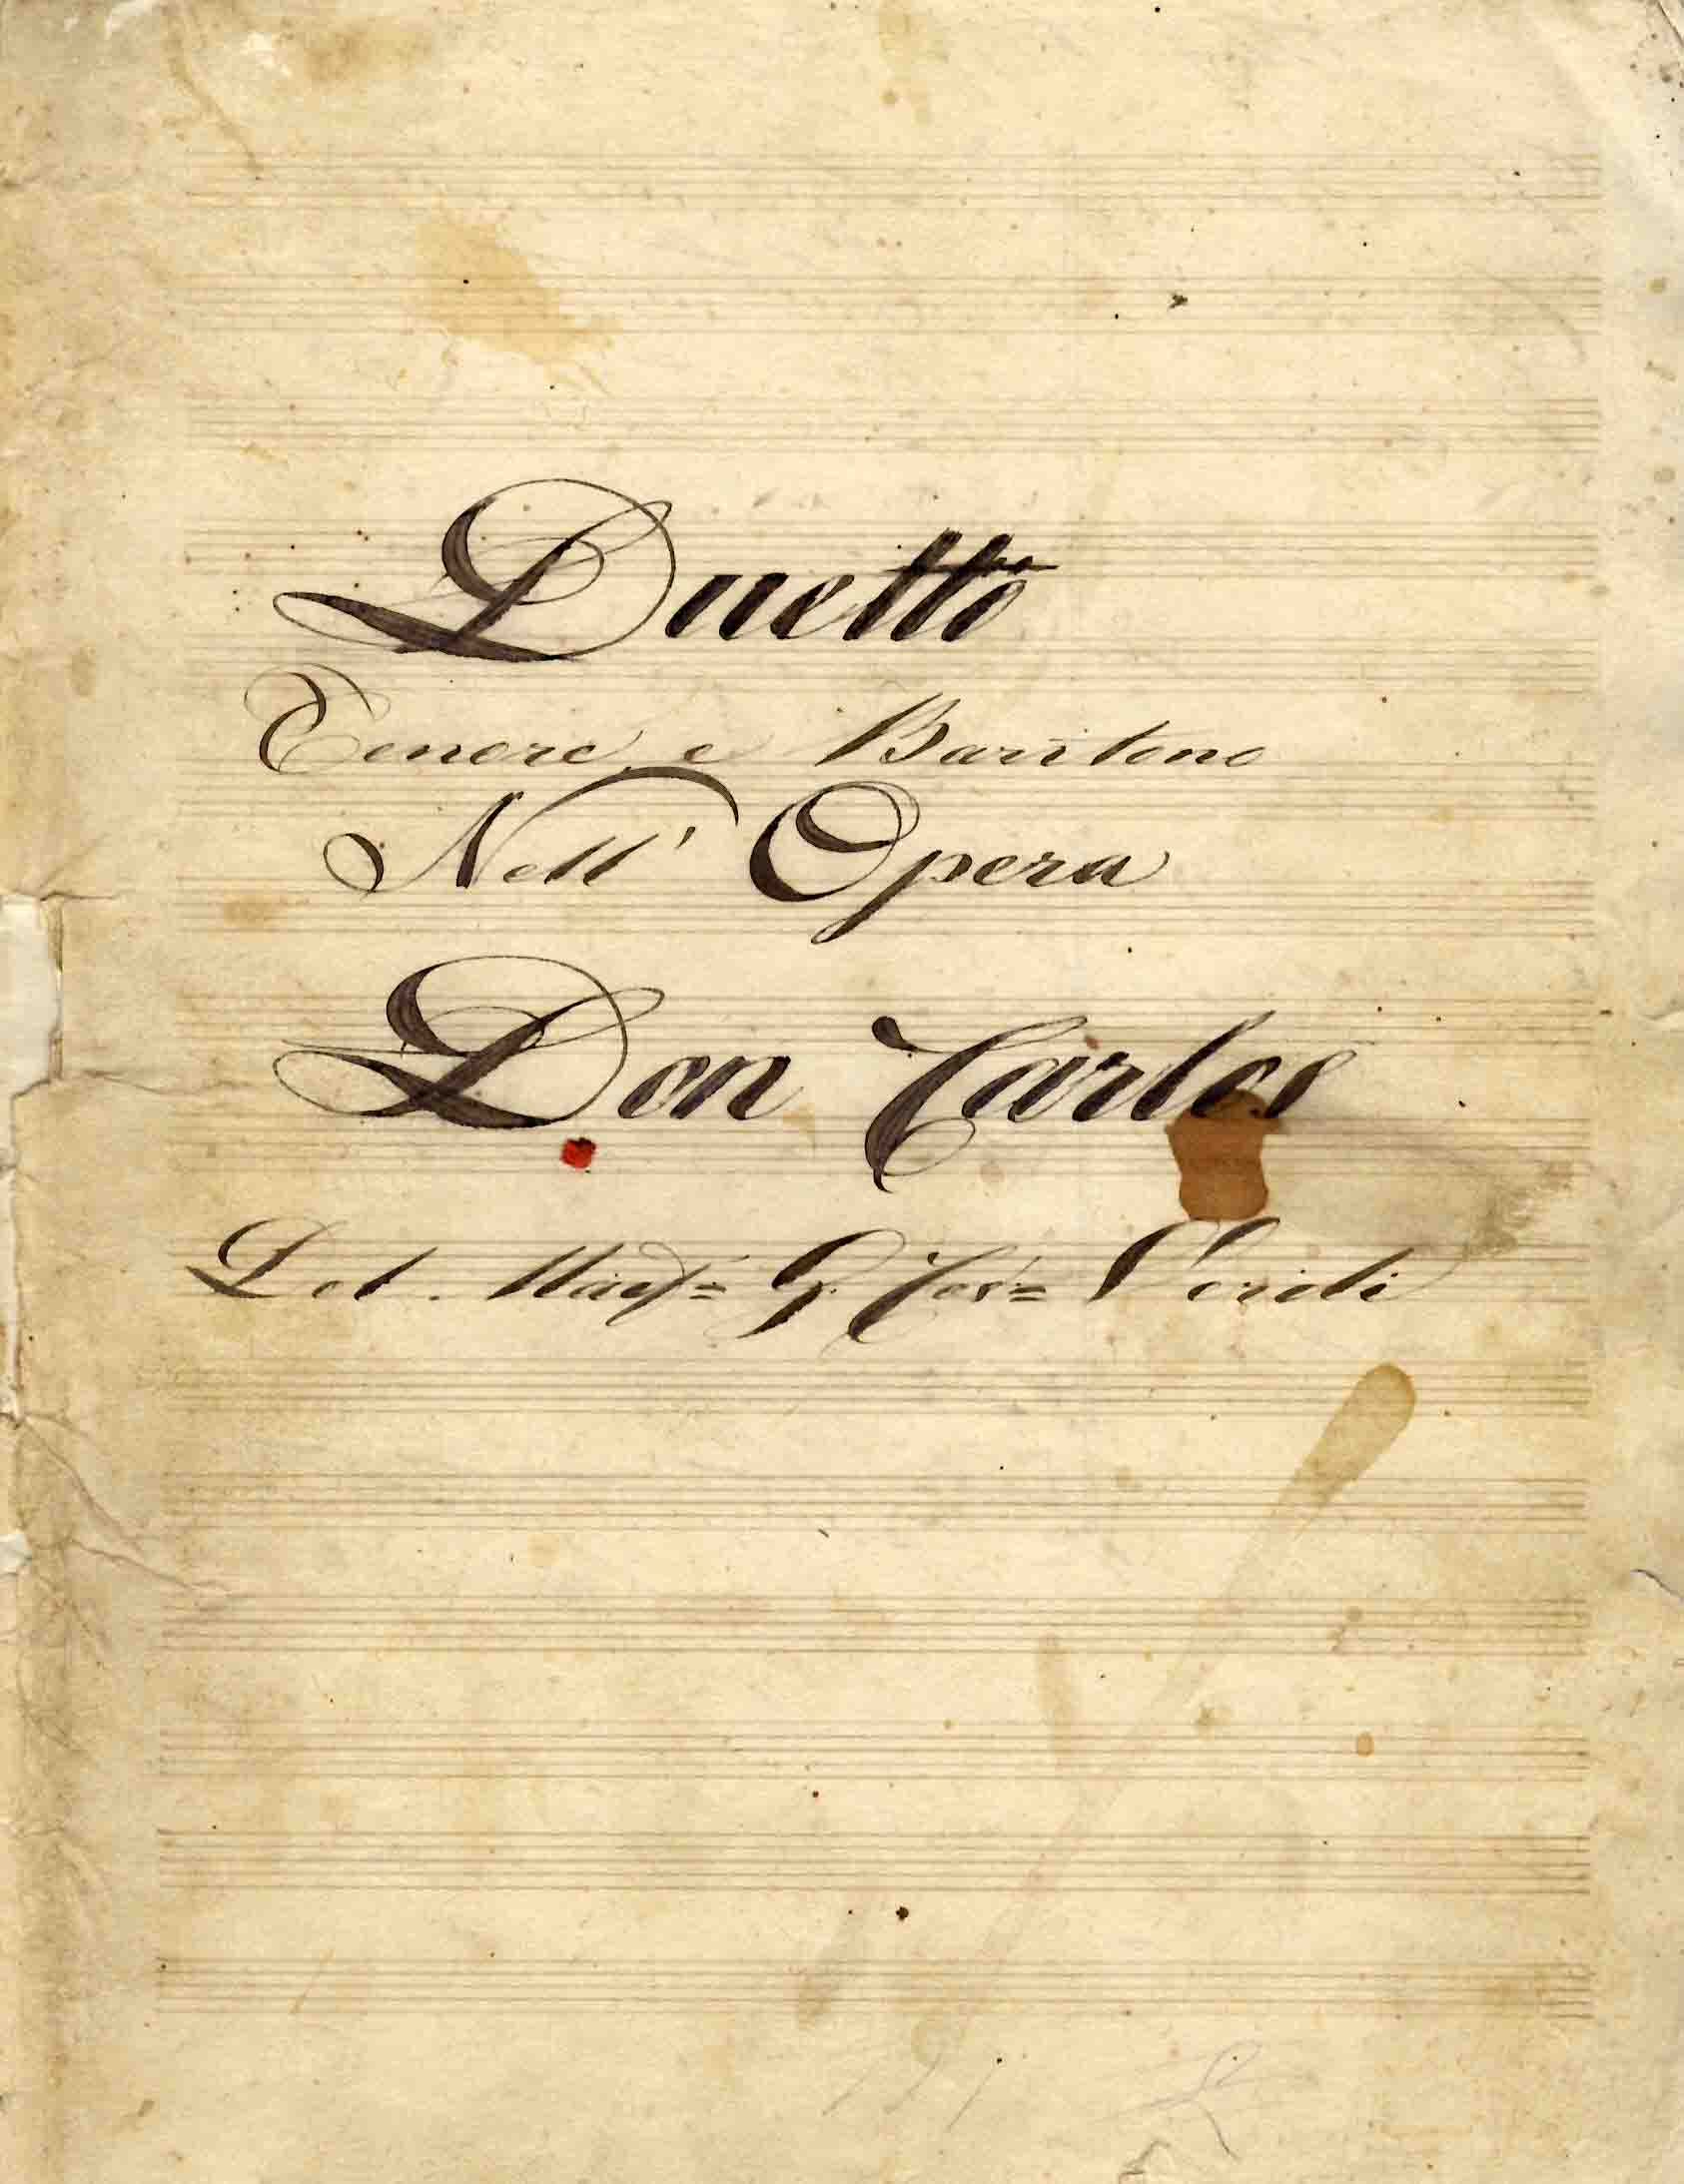 Duetto
Tenore e Baritono
Nell' Opera
Don Carlos
Del. Maes= G. Verdi